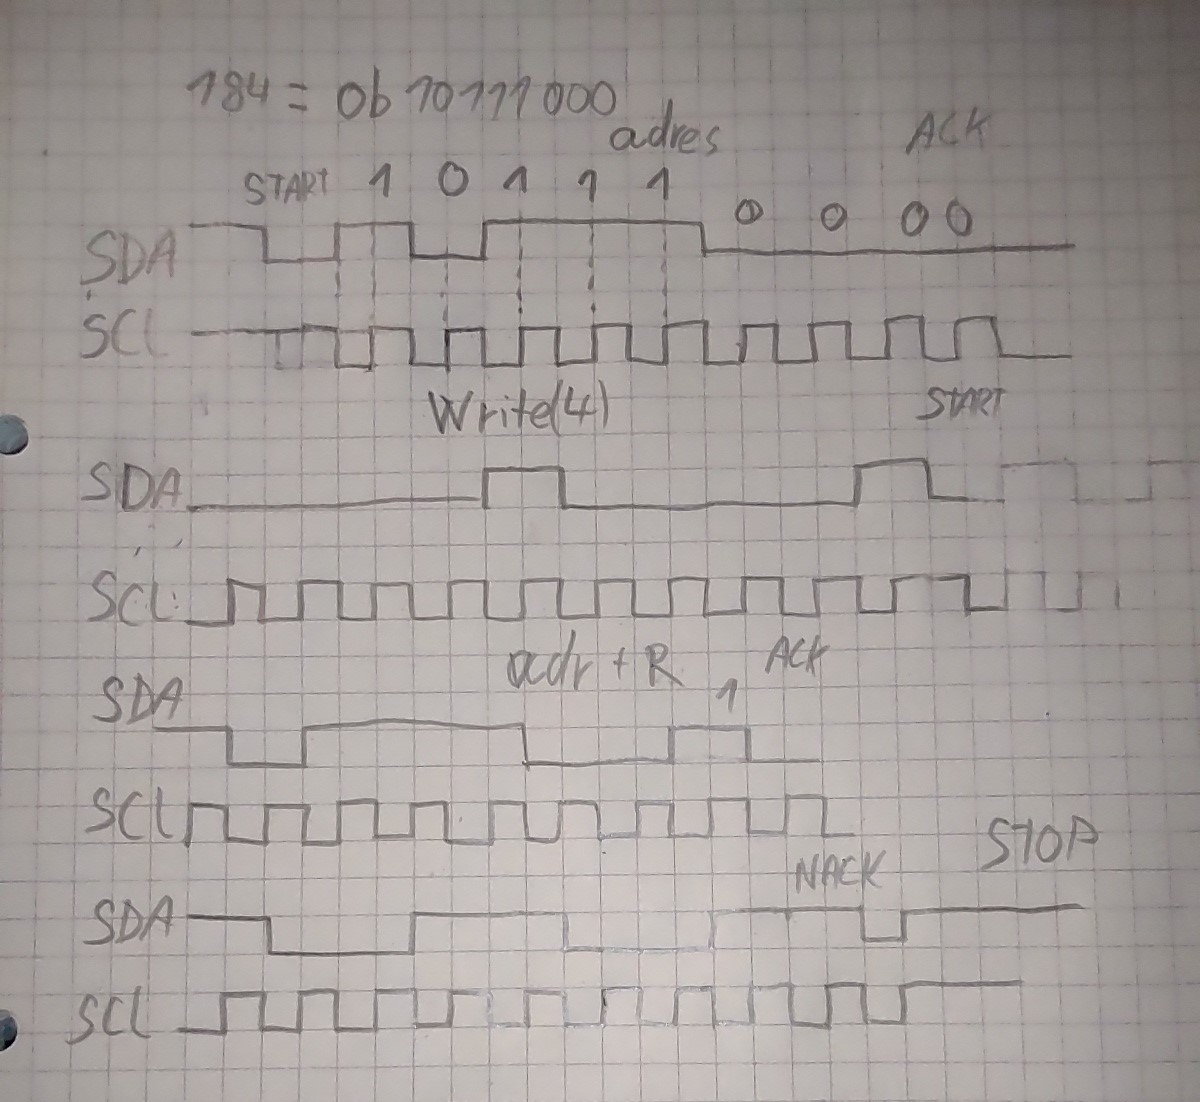 184 = 0b 10111000
adres ACK
START 1 0 1 1 1 0 0 0 0
SDA
SCL
Write(4) START
SDA
SCL
adr + R 1 ACK
SDA
SCL
NACK STOP
SDA
SCL